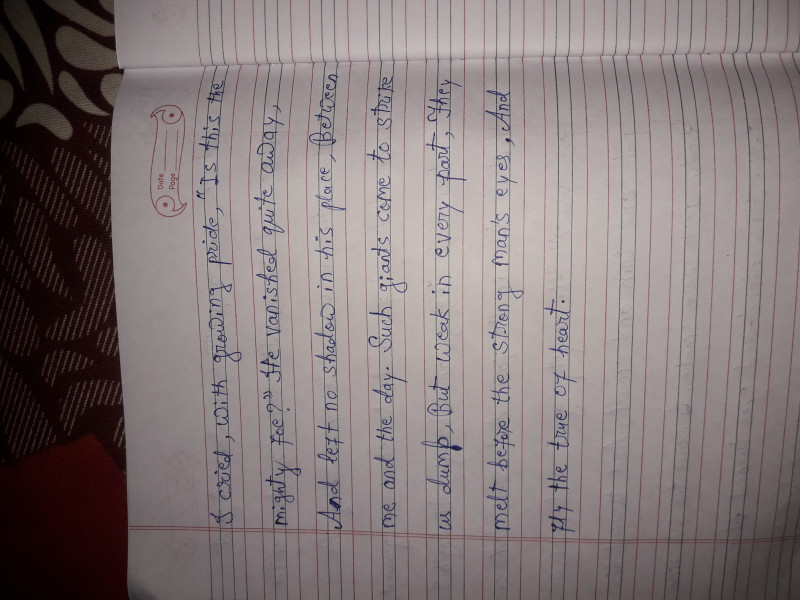 Date
Page
I cried, with growing pride, "Is this the
mighty foe?" He vanished quite away,
And left no shadow in his place, Between
me and the day. Such giants come to strike
us dump, But weak in every part, They
melt before the strong man's eyes, And
fly the true of heart.